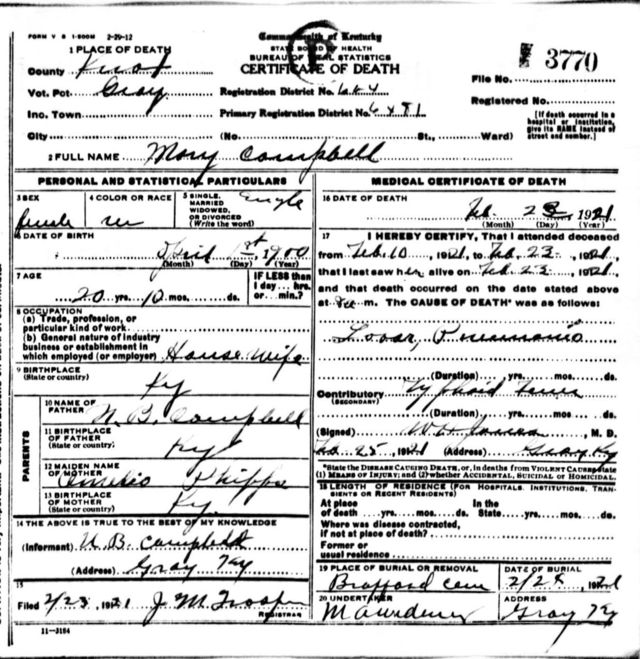 FORM V S 1-500M 2-29-12
Commonwealth of Kentucky
STATE BOARD OF HEALTH
BUREAU OF VITAL STATISTICS
CERTIFICATE OF DEATH
3770
1 PLACE OF DEATH
County Knox
Vot. Pct Gray
Inc. Town
City (No. St., Ward)
Registration District No.
Primary Registration District No.
File No.
Registered No.
[If death occurred in a
hospital or institution,
give its NAME instead of
street and number.]
2 FULL NAME Mary Campbell
PERSONAL AND STATISTICAL PARTICULARS
3 SEX
female
4 COLOR OR RACE
w
5 SINGLE,
MARRIED
WIDOWED,
OR DIVORCED
(Write the word)
Single
6 DATE OF BIRTH
April 1st 1900
(Month) (Day) (Year)
7 AGE
20 yrs. 10 mos. ds.
IF LESS than
1 day ... hrs.
or ... min.?
8 OCCUPATION
(a) Trade, profession, or
particular kind of work
(b) General nature of industry
business or establishment in
which employed (or employer) House wife
9 BIRTHPLACE
(State or country)
Ky
PARENTS
10 NAME OF
FATHER
N. B. Campbell
11 BIRTHPLACE
OF FATHER
(State or country)
Ky
12 MAIDEN NAME
OF MOTHER
Phipps
13 BIRTHPLACE
OF MOTHER
(State or country)
Ky.
14 THE ABOVE IS TRUE TO THE BEST OF MY KNOWLEDGE
(Informant) N. B. Campbell
(Address) Gray Ky
15
Filed 2/25, 1921 J M Trosper
REGISTRAR
11-3184
MEDICAL CERTIFICATE OF DEATH
16 DATE OF DEATH
Feb. 23 1921
(Month) (Day) (Year)
17 I HEREBY CERTIFY, That I attended deceased
from Feb. 10, 1921, to Feb. 23, 1921,
that I last saw her alive on Feb. 23, 1921,
and that death occurred on the date stated above
at m. The CAUSE OF DEATH* was as follows:
Lobar Pneumonia
(Duration) yrs. mos. ds.
Contributory Typhoid Fever
(SECONDARY)
(Duration) yrs. mos. ds.
(Signed) M. D.
Feb. 25, 1921 (Address) Gray Ky
*State the DISEASE CAUSING DEATH, or, in deaths from VIOLENT CAUSES, state
(1) MEANS OF INJURY; and (2) whether ACCIDENTAL, SUICIDAL or HOMICIDAL.
18 LENGTH OF RESIDENCE (FOR HOSPITALS, INSTITUTIONS, TRAN-
SIENTS OR RECENT RESIDENTS)
At place
of death yrs. mos. ds.
In the
State yrs. mos. ds.
Where was disease contracted,
if not at place of death?
Former or
usual residence
19 PLACE OF BURIAL OR REMOVAL
Brafford Cem
DATE OF BURIAL
1921
20 UNDERTAKER
ADDRESS
Gray Ky